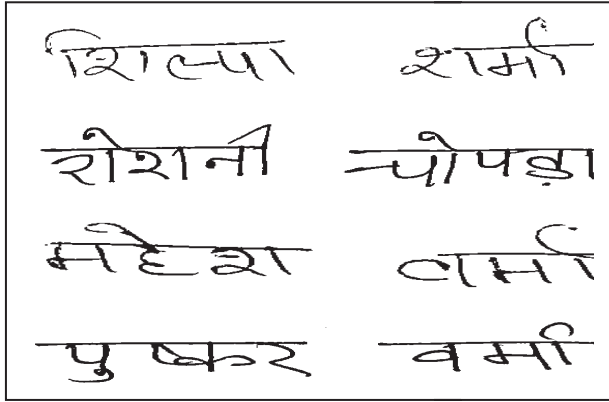 शिल्पा शर्मा
रोशनी चोपड़ा
महेश वर्मा
पुष्कर वर्मा